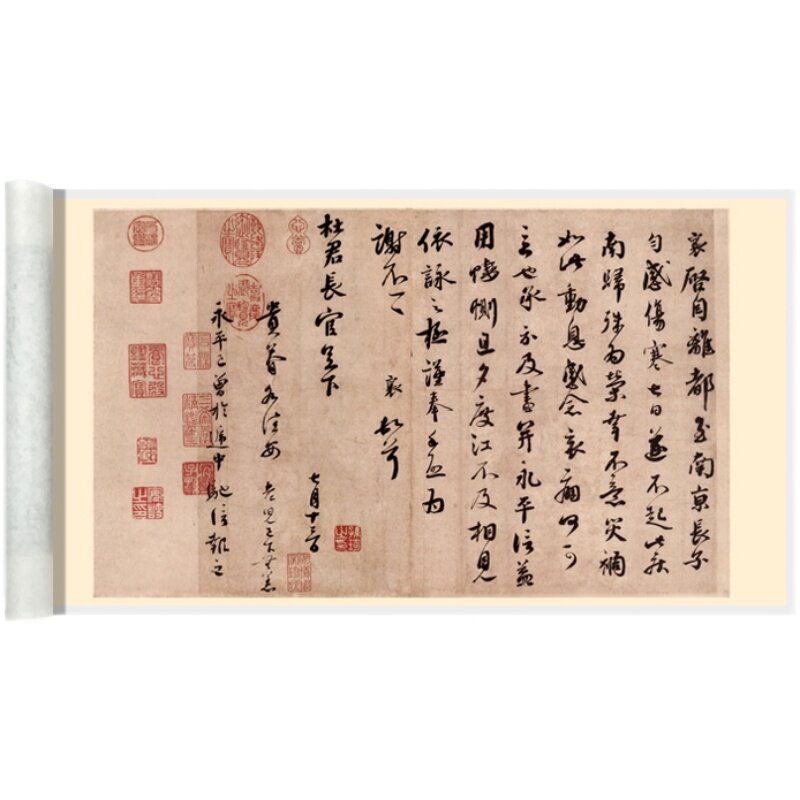 襄啓自離都至南京長子
勻感傷寒七日遂不起此疾
南歸殊為榮幸不意災禍
如此動息感念哀痛何可
言也承示及書并永平信益
用悽惻旦夕度江不及相見
依詠之極謹奉手啓為
謝不一一 襄頓首
杜君長官足下
七月十三日
貴眷各佳安 老兒已下無恙
永平已曾於遞中馳信報之